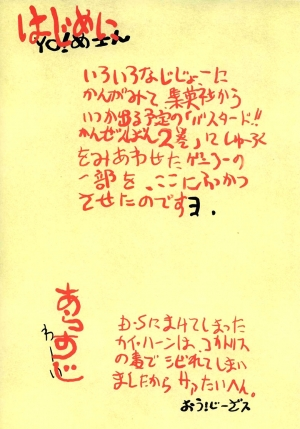 はじめに
いろいろなじじょーに
かんがみて集英社から
いつか出る予定の「バスタード!!
かんぜんばん2巻」にしゅーろく
をみあわせたゲンコーの
一部を、ここにふっかつ
させたのですヨ.
あらすじ
D・Sにまけてしまった
カイ・ハーンは、コカトリス
の毒でシビれてしまい
ましたからサァたいへん。
おう!じーざス